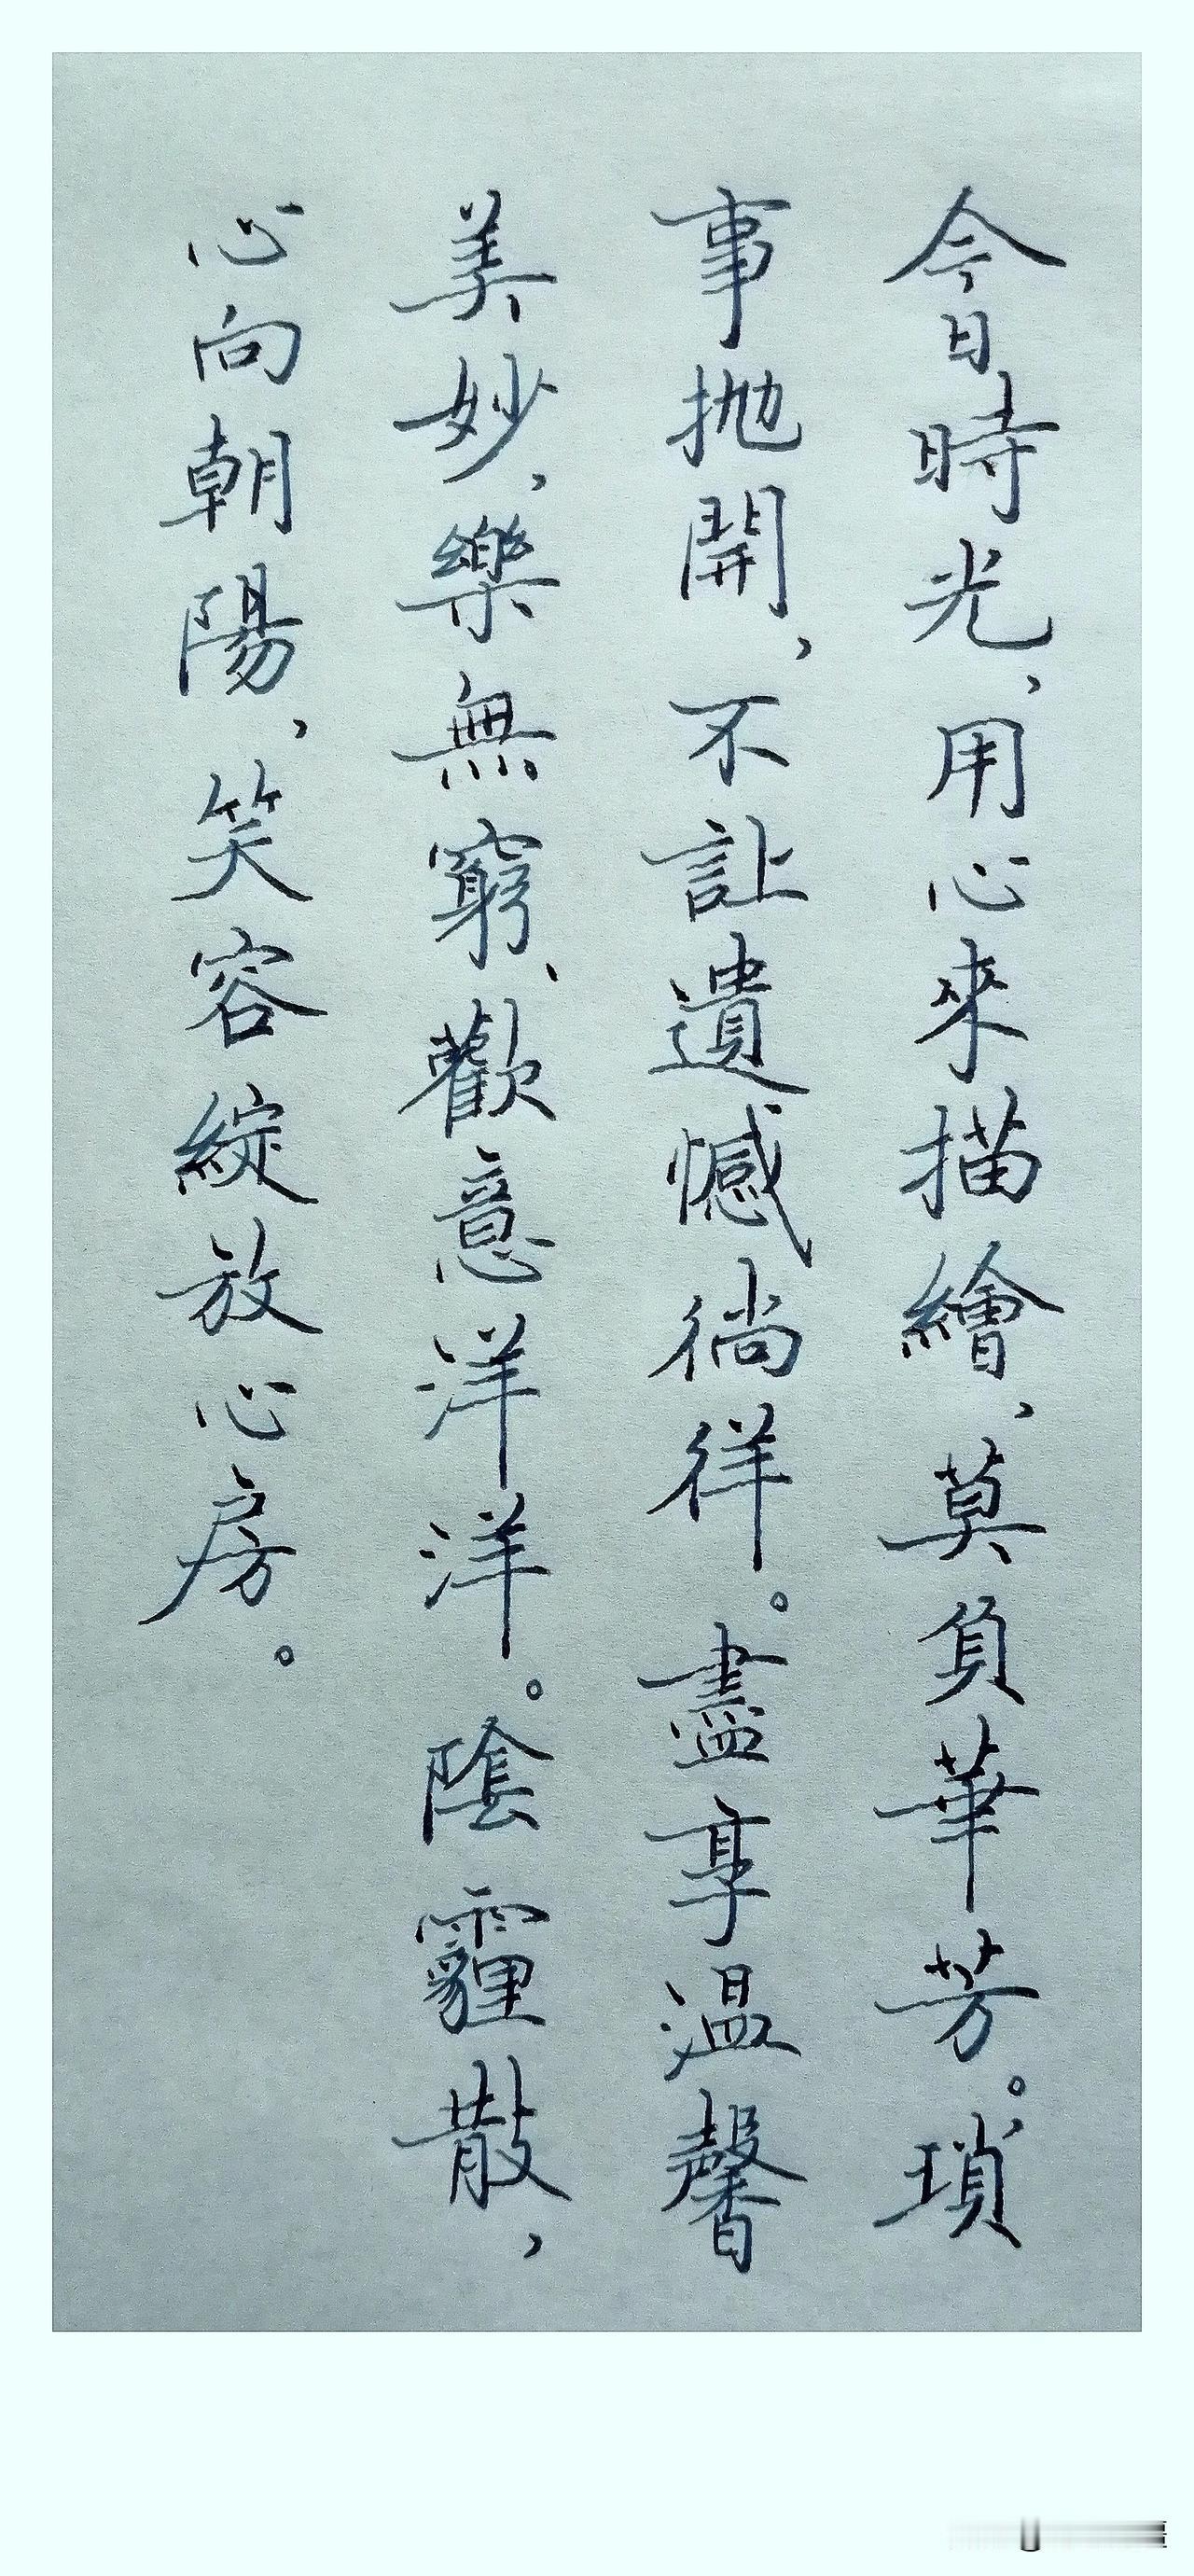 今日時光，用心來描繪，莫負華芳。瑣
事拋開，不訨遺憾徜徉。盡享温馨
美妙，樂無窮、歡意洋洋。陰霾散，
心向朝陽，笑容綻放心房。